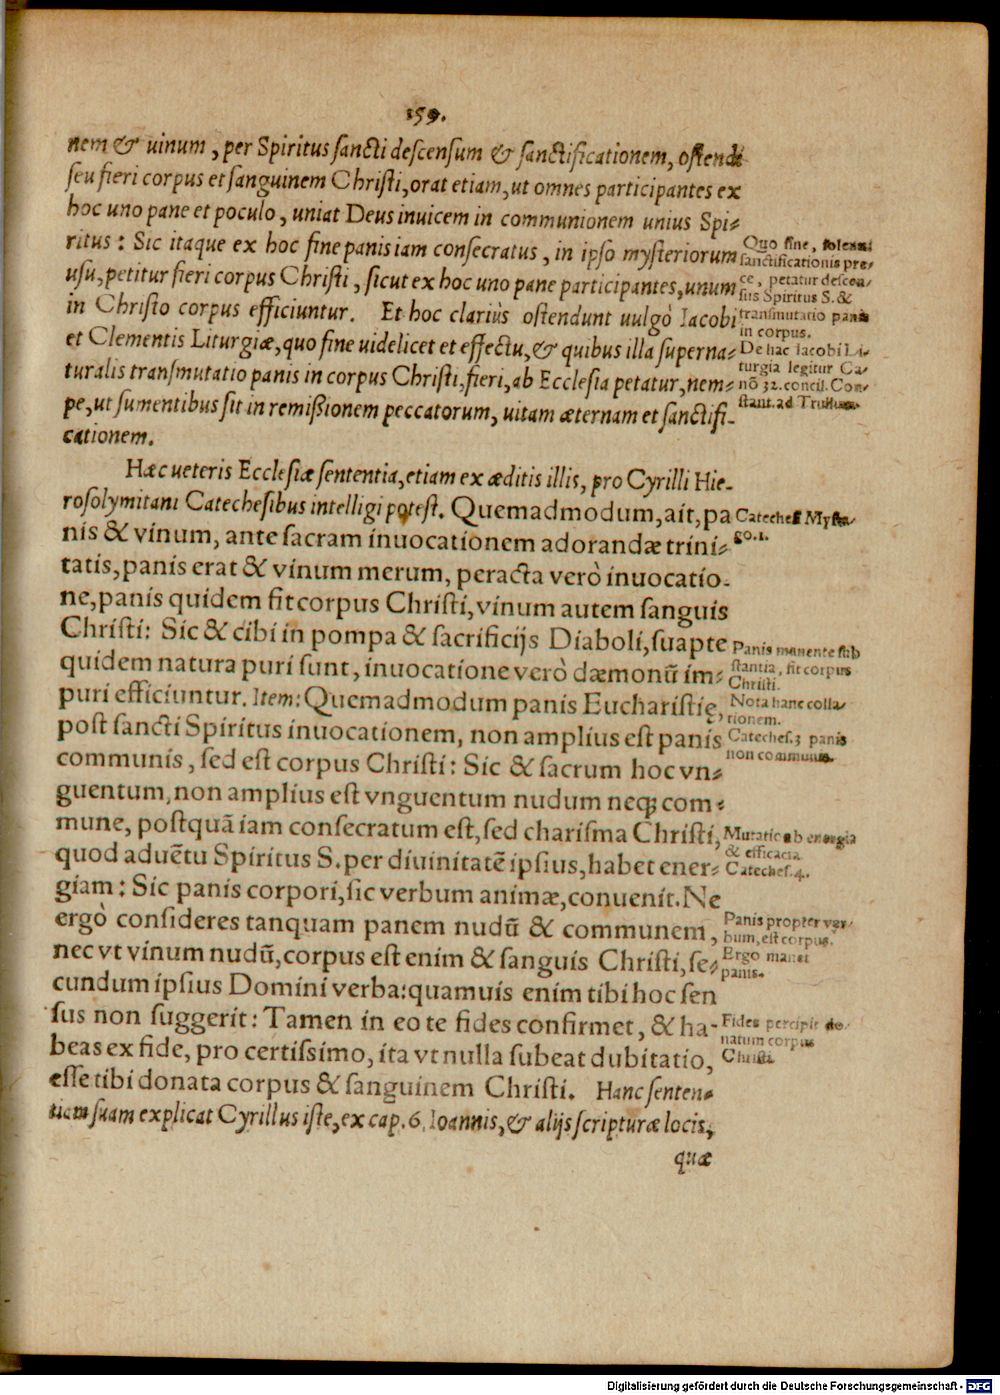 159.
nem & uinum, per Spiritus sancti descensum & sanctificationem, ostendi
seu fieri corpus et sanguinem Christi, orat etiam, ut omnes participantes ex
hoc uno pane et poculo, uniat Deus inuicem in communionem unius Spi-
ritus: Sic itaque ex hoc fine panis iam consecratus, in ipso mysteriorum
usu, petitur fieri corpus Christi, sicut ex hoc uno pane participantes, unum
in Christo corpus efficiuntur. Et hoc clariùs ostendunt uulgò Iacobi
et Clementis Liturgiæ, quo fine uidelicet et effectu, & quibus illa superna-
turalis transmutatio panis in corpus Christi, fieri, ab Ecclesia petatur, nem-
pe, ut sumentibus sit in remißionem peccatorum, uitam æternam et sanctifi-
cationem.
Quo fine, solenni
sanctificationis pre-
ce, petatur descen-
sus Spiritus S. &
transmutatio panis
in corpus.
De hac Iacobi Li-
turgia legitur Ca-
nõ 32. concil. Con-
stant. ad Trullum.
Hæc ueteris Ecclesiæ sententia, etiam ex æditis illis, pro Cyrilli Hie-
rosolymitani Catechesibus intelligi potest. Quemadmodum, ait, pa
nis & vinum, ante sacram inuocationem adorandæ trini-
tatis, panis erat & vinum merum, peracta verò inuocatio-
ne, panis quidem fit corpus Christi, vinum autem sanguis
Christi: Sic & cibi in pompa & sacrificijs Diaboli, suapte
quidem natura puri sunt, inuocatione verò dæmonũ im-
puri efficiuntur. Item: Quemadmodum panis Eucharistię,
post sancti Spiritus inuocationem, non amplius est panis
communis, sed est corpus Christi: Sic & sacrum hoc vn-
guentum, non amplius est vnguentum nudum neq; com-
mune, postquã iam consecratum est, sed charisma Christi,
quod aduẽtu Spiritus S. per diuinitatẽ ipsius, habet ener-
giam: Sic panis corpori, sic verbum animæ, conuenit. Ne
ergò consideres tanquam panem nudũ & communem,
nec vt vinum nudũ, corpus est enim & sanguis Christi, se-
cundum ipsius Domini verba: quamuis enim tibi hoc sen
sus non suggerit: Tamen in eo te fides confirmet, & ha-
beas ex fide, pro certissimo, ita vt nulla subeat dubitatio,
esse tibi donata corpus & sanguinem Christi. Hanc senten-
tiam suam explicat Cyrillus iste, ex cap. 6. Ioannis, & alijs scripturæ locis,
quæ
Cateches Mysta-
go. 1.
Panis manente sub
stantia, fit corpus
Christi.
Nota hanc colla-
tionem.
Cateches. 3 panis
non communis.
Mutatio ab energia
& efficacia
Cateches. 4.
Panis propter ver-
bum, est corpus.
Ergo manet
panis.
Fides percipit do-
natum corpus
Christi.
Digitalisierung gefördert durch die Deutsche Forschungsgemeinschaft - DFG